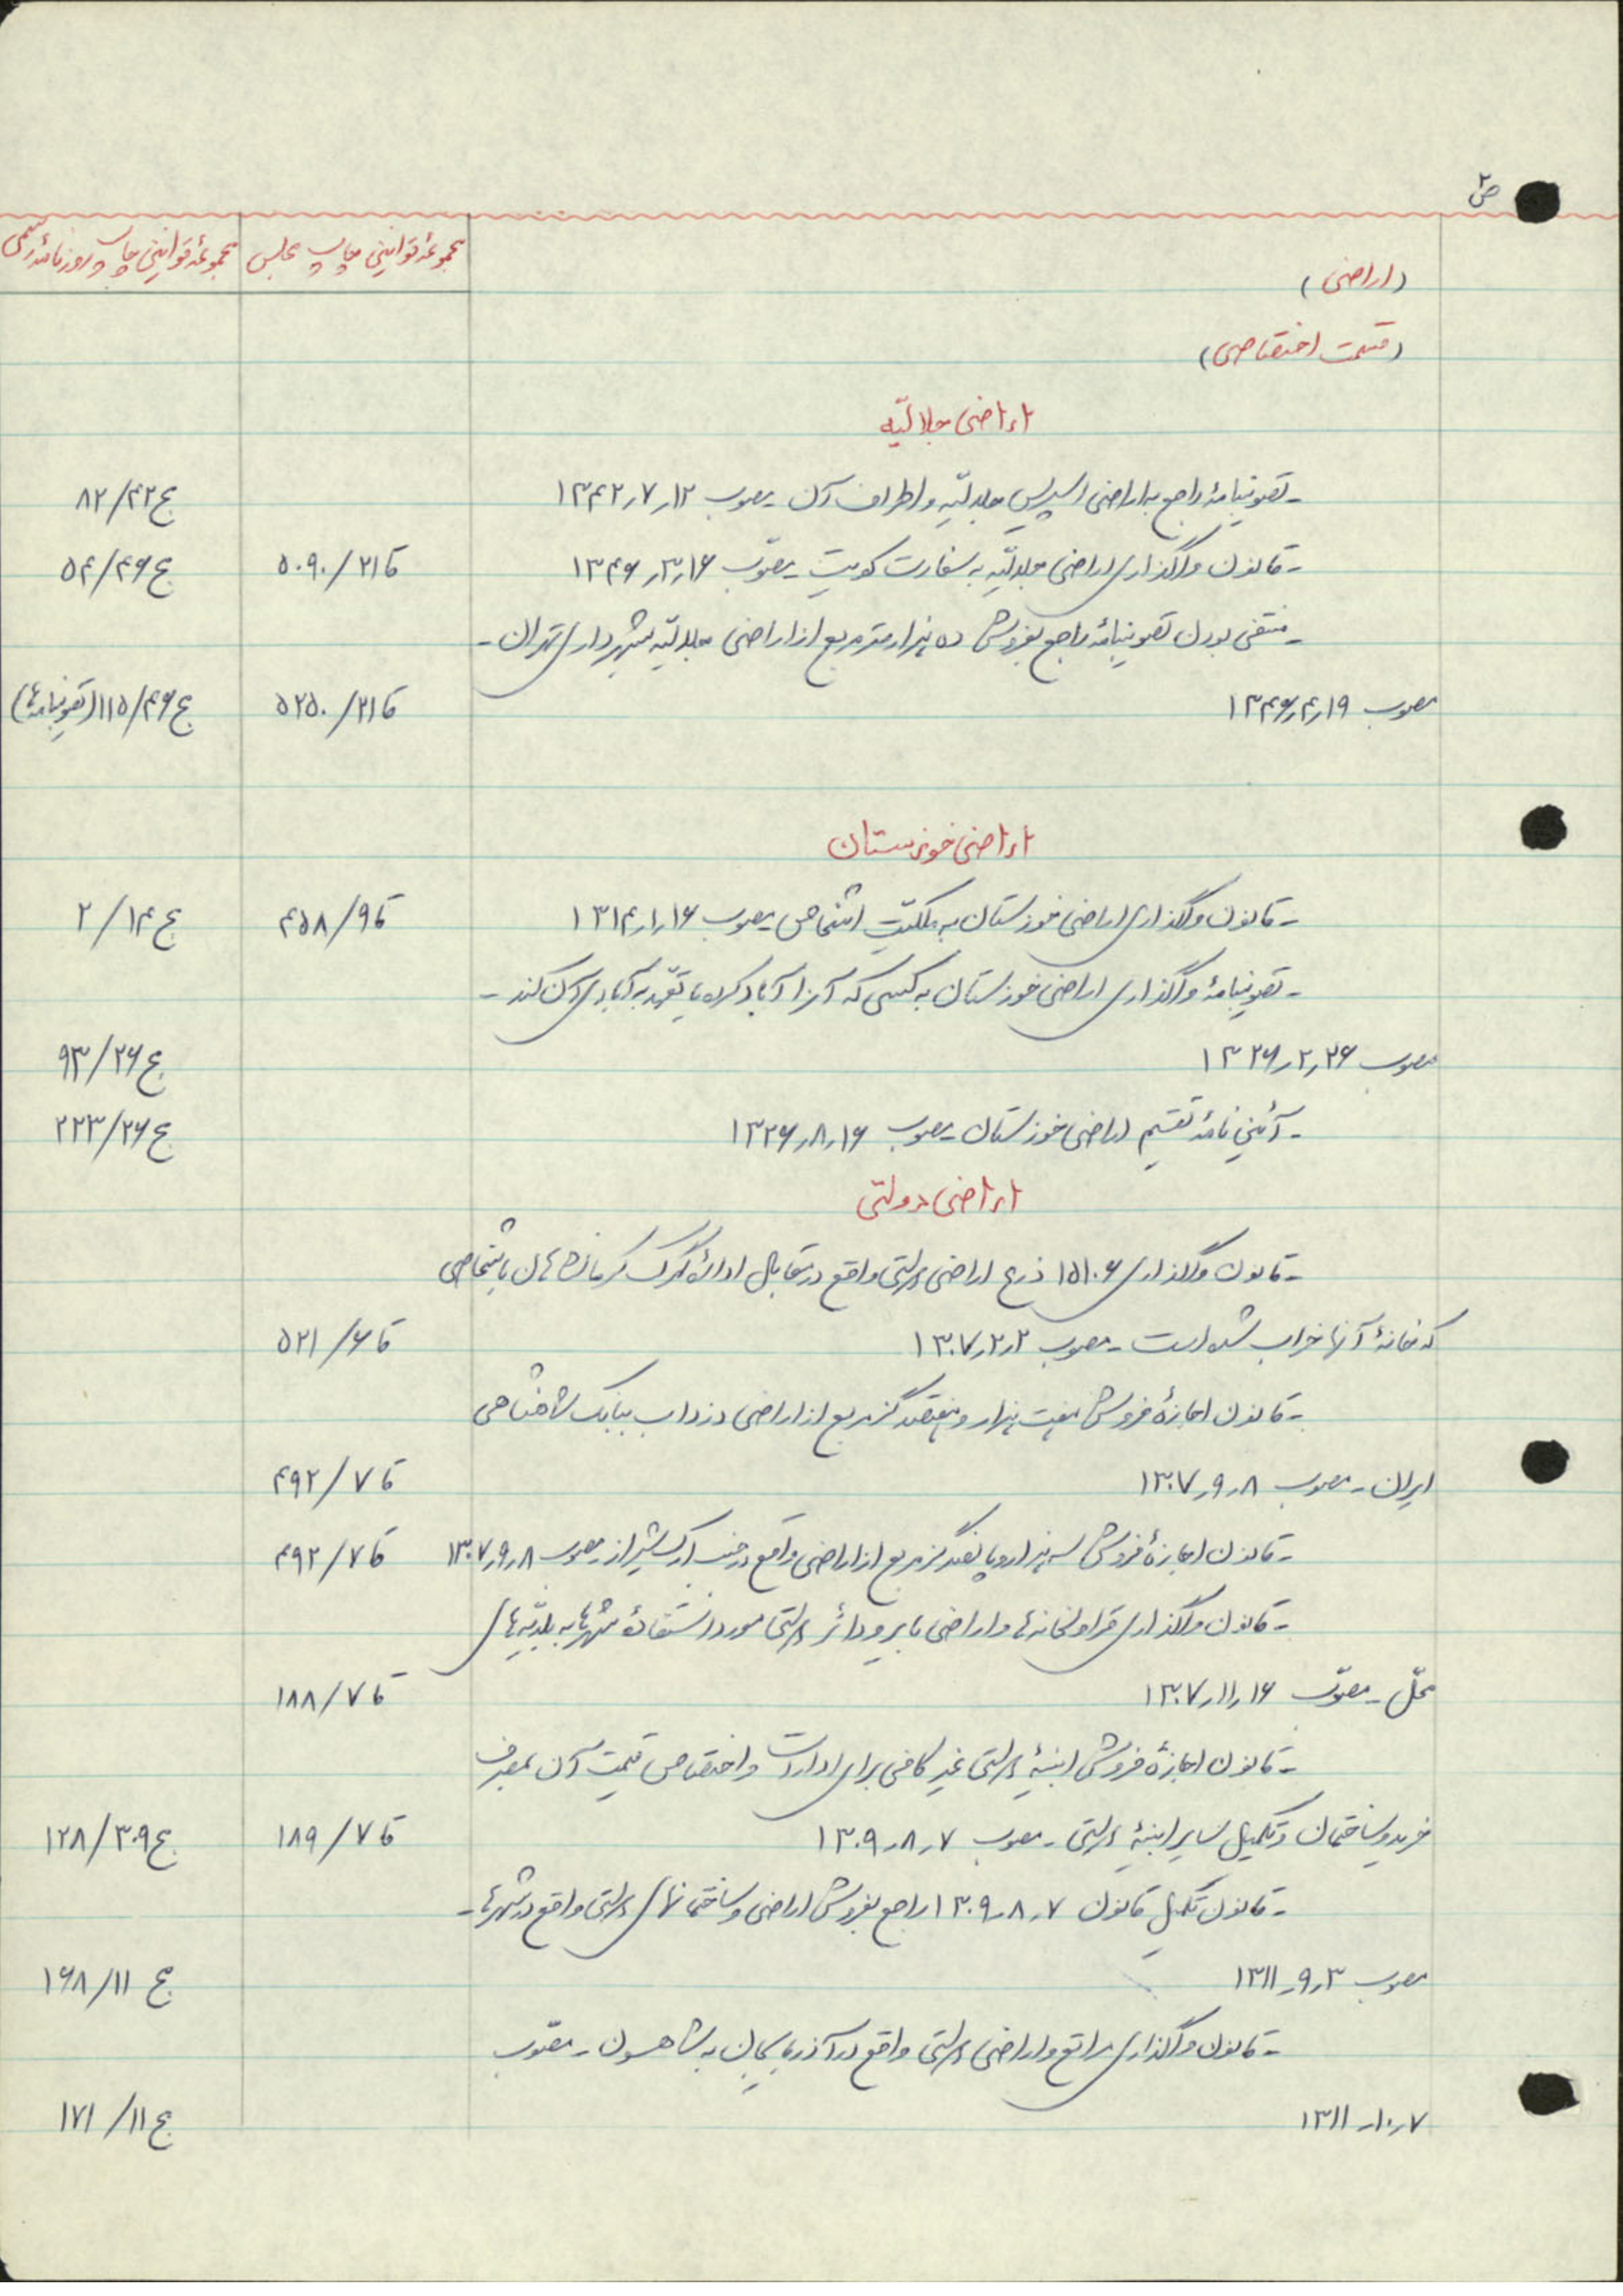 ص ۲
مجموعهٔ قوانین چاپ مجلس
مجموعهٔ قوانین چاپ روزنامهٔ رسمی
(اراضی)
(قسمت اختصاصی)
اراضی جلالیّه
- تصویبنامهٔ راجع به اراضی اسپریس جلالیّه و اطراف آن - مصوب ۱۲ر۷ر۱۳۴۲ ج۴۲/۸۲
- قانون واگذاری اراضی جلالیّه به سفارت کویت - مصوّب ۱۶ر۳ر۱۳۴۶ قا۲۱/۵۰۹۰ ج۴۶/۵۴
- منتفی بودن تصویبنامهٔ راجع بفروش ده هزار متر مربع از اراضی جلالیّه بشهرداری تهران -
مصوب ۱۹ر۴ر۱۳۴۶ قا۲۱/۵۲۵۰ ج۴۶/۱۱۵(تصویبنامه‌ها)
اراضی خوزستان
- قانون واگذاری اراضی خوزستان به ملکیّت اشخاص - مصوب ۱۶ر۱ر۱۳۱۴ قا۹/۴۵۸ ج۱۴/۲
- تصویبنامهٔ واگذاری اراضی خوزستان به کسی که آنرا آباد کرده یا تعّهد به آبادی آن کند -
مصوب ۲۶ر۲ر۱۳۲۶ ج۲۶/۹۳
- آئین نامهٔ تقسیم اراضی خوزستان - مصوب ۱۶ر۸ر۱۳۲۶ ج۲۶/۲۲۳
اراضی دولتی
- قانون واگذاری ۱۵۱۰۶ ذرع اراضی دولتی واقع در مقابل ادارهٔ گمرک کرمانشاهان باشخاصی
که خانهٔ آنها خراب شده است - مصوب ۲ر۲ر۱۳۰۷ قا۶/۵۲۱
- قانون اجازهٔ فروش هفت هزار و هفتصد گز مربع از اراضی دزداب ببانک شاهنشاهی
ایران - مصوب ۸ر۹ر۱۳۰۷ قا۷/۴۹۲
- قانون اجازهٔ فروش سه هزار و پانصد گز مربع از اراضی واقع در جنب ارک شیراز - مصوب ۸ر۹ر۱۳۰۷ قا۷/۴۹۲
- قانون واگذاری قراولخانه‌ها و اراضی بایر و دائر دولتی مورد استفادهٔ شهرها به بلدیّه‌های
محلّ - مصوّب ۱۶ر۱۱ر۱۳۰۷ قا۷/۱۸۸
- قانون اجازهٔ فروش ابنیهٔ دولتی غیر کافی برای ادارات و اختصاص قیمت آن بمصرف
خرید و ساختمان و تکمیل سایر ابنیهٔ دولتی - مصوب ۷ر۸ر۱۳۰۹ قا۷/۱۸۹ ج۳۰۹/۱۲۸
- قانون تکمیل قانون ۷ر۸ر۱۳۰۹ راجع بفروش اراضی و ساختمانهای دولتی واقع در شهرها -
مصوب ۳ر۹ر۱۳۱۱ ج۱۱/۱۶۸
- قانون واگذاری مراتع و اراضی دولتی واقع در آذربایجان به شاهسون - مصّوب
۷ر۱۰ر۱۳۱۱ ج۱۱/۱۷۱